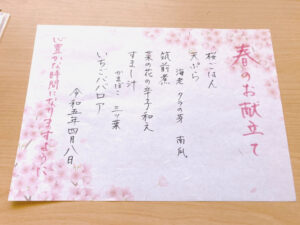 春のお献立て
桜ごはん
天ぷら
海老 タラの芽 南瓜
筑前煮
菜の花の辛子和え
すまし汁
かまぼこ 三ツ葉
いちごババロア
令和五年四月八日
心豊かな時間になりますように